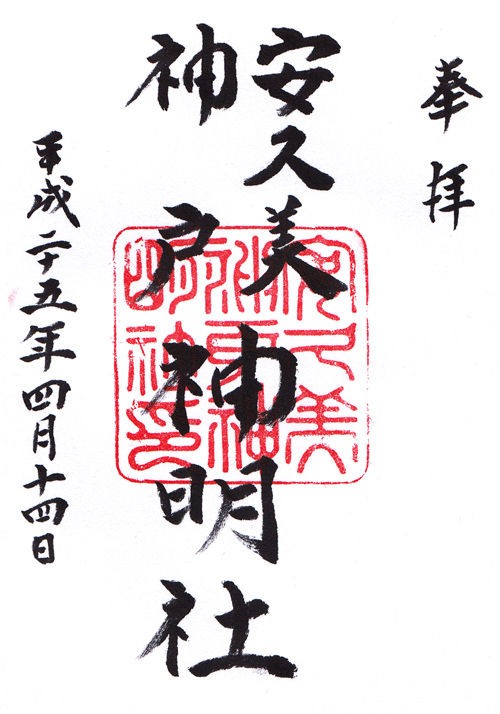 奉拝
安久美
神戸神明社
安久美
神戸神
明社印
平成二十五年四月十四日